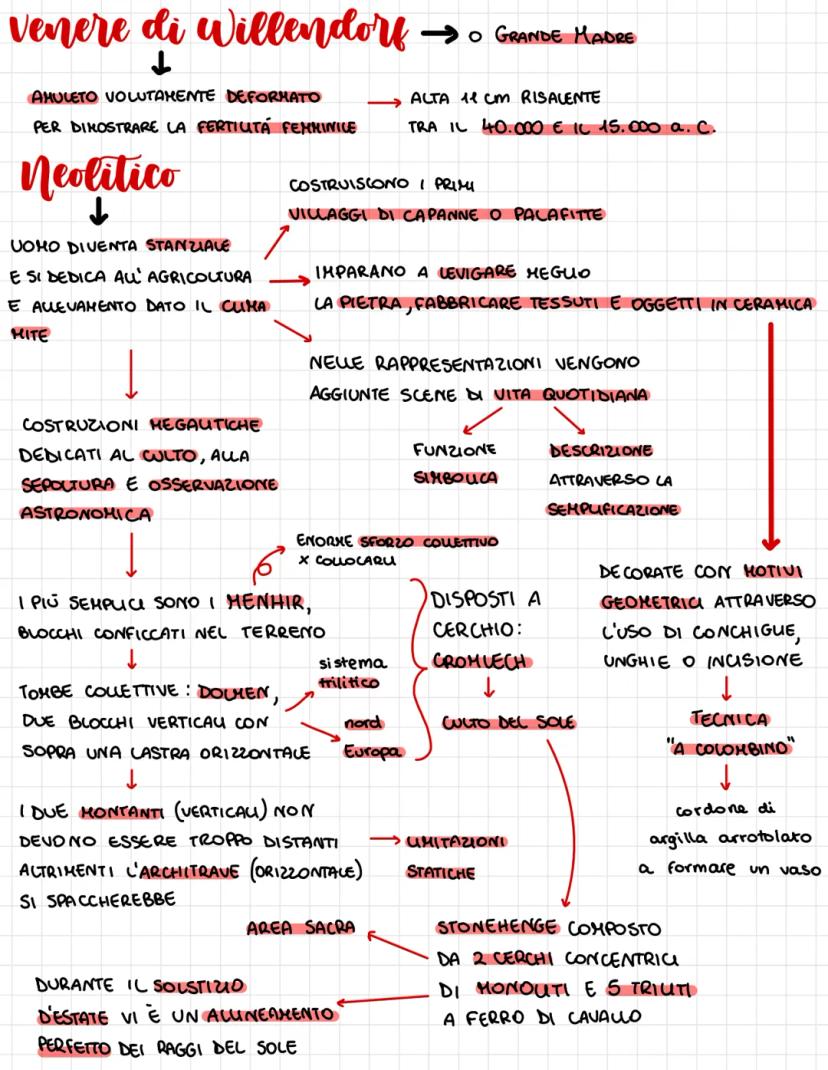 Venere di Willendorf → o GRANDE MADRE
AMULETO VOLUTAMENTE DEFORMATO
PER DIMOSTRARE LA FERTILITÁ FEMMINILE
→ ALTA 11 cm RISALENTE
TRA IL 40.000 E IL 15.000 a. C.
Neolitico
UOMO DIVENTA STANZIALE
E SI DEDICA ALL'AGRICOLTURA
E ALLEVAMENTO DATO IL CLIMA
MITE
COSTRUISCONO I PRIMI
VILLAGGI DI CAPANNE O PALAFITTE
IMPARANO A LEVIGARE MEGLIO
LA PIETRA, FABBRICARE TESSUTI E OGGETTI IN CERAMICA
NELLE RAPPRESENTAZIONI VENGONO
AGGIUNTE SCENE DI VITA QUOTIDIANA
FUNZIONE
SIMBOLICA
DESCRIZIONE
ATTRAVERSO LA
SEMPLIFICAZIONE
COSTRUZIONI MEGALITICHE
DEDICATI AL CULTO, ALLA
SEPOLTURA E OSSERVAZIONE
ASTRONOMICA
ENORME SFORZO COLLETTIVO
x COLLOCARLI
I PIÙ SEMPLICI SONO I MENHIR,
BLOCCHI CONFICCATI NEL TERRENO
TOMBE COLLETTIVE: DOLMEN,
DUE BLOCCHI VERTICALI CON
SOPRA UNA LASTRA ORIZZONTALE
sistema
trilitico
nord
Europa
DISPOSTI A
CERCHIO:
CROMLECH
CULTO DEL SOLE
DECORATE CON MOTIVI
GEOMETRICI ATTRAVERSO
L'USO DI CONCHIGLIE,
UNGHIE O INCISIONE
TECNICA
"A COLOMBINO"
cordone di
argilla arrotolato
a formare un vaso
I DUE MONTANTI (VERTICALI) NON
DEVONO ESSERE TROPPO DISTANTI
ALTRIMENTI L'ARCHITRAVE (ORIZZONTALE)
SI SPACCHEREBBE
LIMITAZIONI
STATICHE
STONEHENGE COMPOSTO
DA 2 CERCHI CONCENTRICI
DI MONOLITI E 5 TRILITI
A FERRO DI CAVALLO
AREA SACRA
DURANTE IL SOLSTIZIO
D'ESTATE VI È UN ALLINEAMENTO
PERFETTO DEI RAGGI DEL SOLE